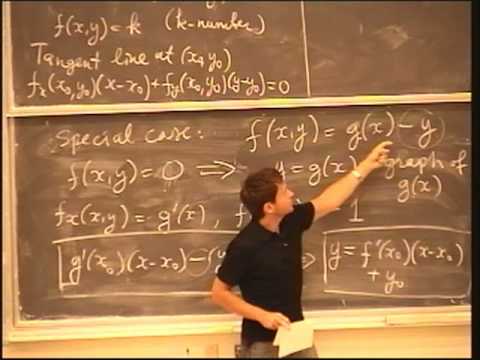 f(x,y)=k (k-number)
Tangent line at (x₀,y₀)
fₓ(x₀,y₀)(x-x₀)+f_y(x₀,y₀)(y-y₀)=0
Special case: f(x,y) = g(x) - y
f(x,y) = 0 ⇒ y = g(x) graph of
g(x)
fₓ(x,y) = g'(x), 1
g'(x₀)(x-x₀) - ⇒ y = f'(x₀)(x-x₀)
+ y₀